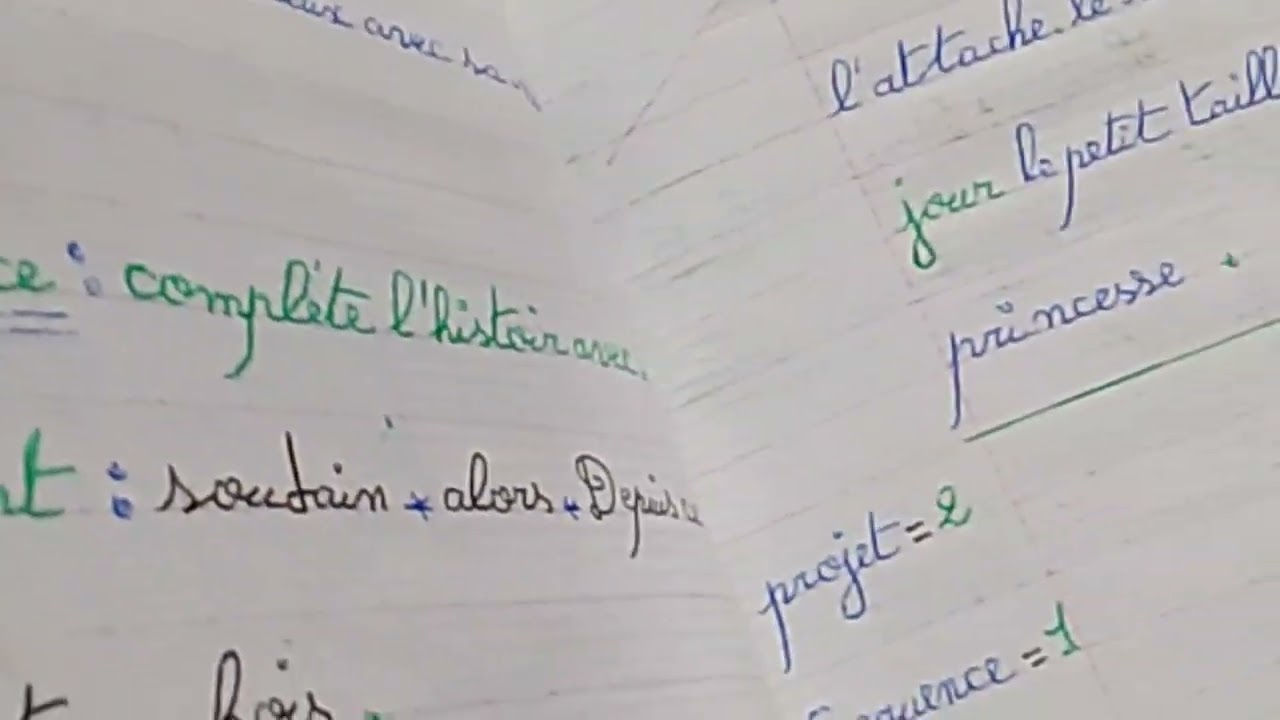 avec
ce : complète l'histoir avec
t : soudain * alors * Depuis ce
fois
l'attache. le
jour le petit taill
princesse .
projet = 2
quence = 1